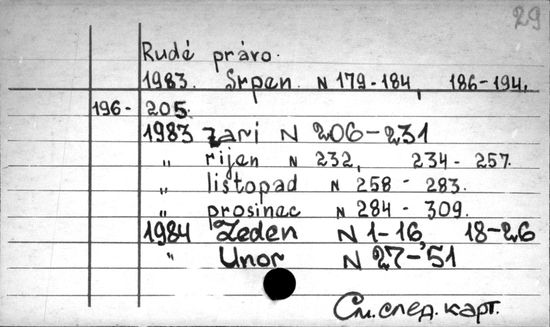 29
Rudé právo.
1983. Srpen. N 179-184, 186-194,
196-205.
1983 zari N 206-231
" rijen N 232, 234-257.
" listopad N 258-283.
" prosinac N 284-309.
1984 Leden N 1-16 18-26
" Unor N 27-51
См. след. карт.